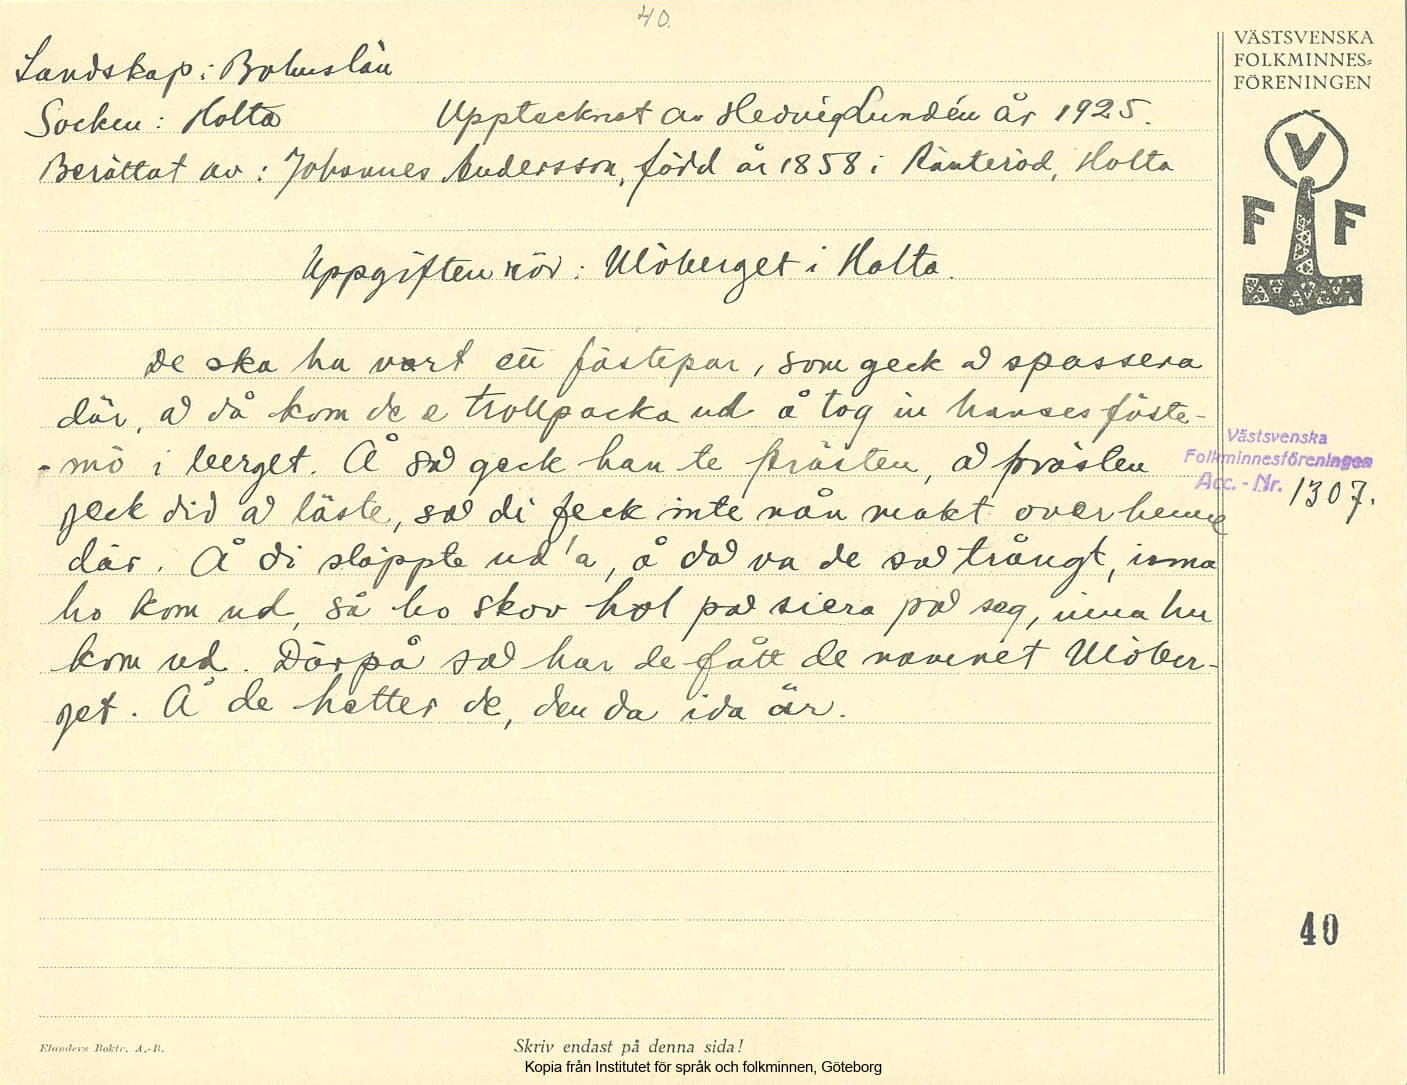 40.
VÄSTSVENSKA
FOLKMINNES-
FÖRENINGEN
V
F F
Landskap: Bohuslän
Socken: Holta Upptecknat av Hedvig Lundén år 1925.
Berättat av: Johannes Andersson, född år 1858 i Ränteröd, Holta
Uppgiften rör: Ulöberget i Holta.
De ska ha vart ett fästepar, som geck å spassera
där, å då kom de e trollpacka ud å tog in hanses fäste-
-mö i berget. Å så geck han te prästen, å prästen
geck did å läste, så di feck inte nån makt over henne
där. Å di släppte ud'a, å då va de så trångt, inna
ho kom ud, så ho skov hol på siera på seg, inna hu
kom ud. Därpå så har de fått de namnet Ulöber-
get. Å de hetter de, den da ida är.
Västsvenska
Folkminnesföreningen
Acc. - Nr. 1307.
40
Elanders Boktr. A.-B.
Skriv endast på denna sida!
Kopia från Institutet för språk och folkminnen, Göteborg